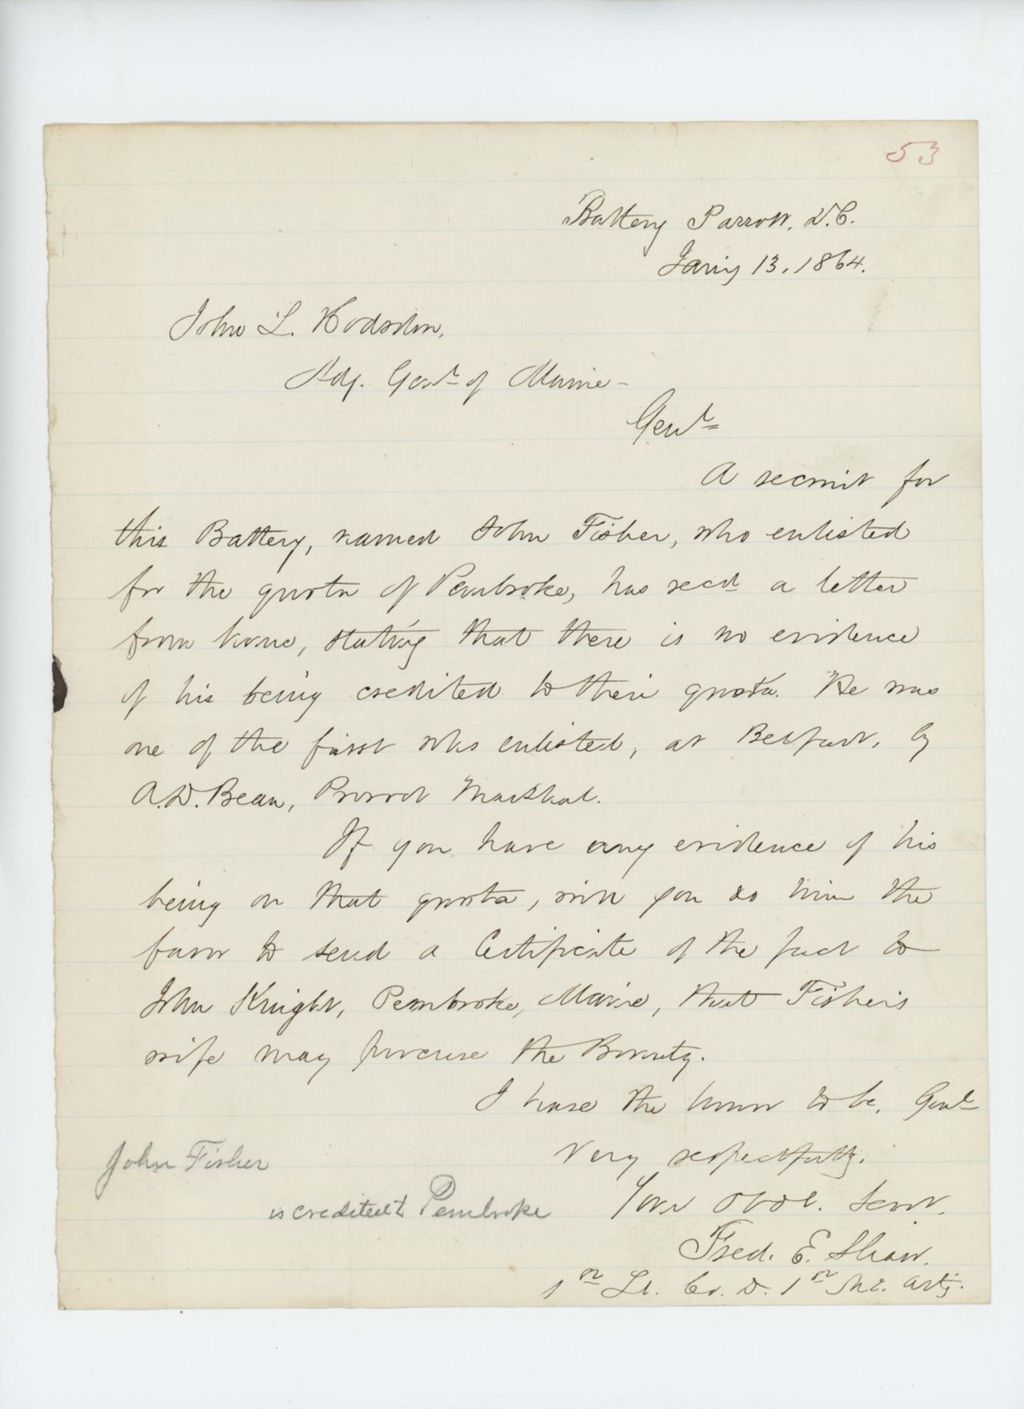 53
Battery Parrott, D.C.
Jan'y 13, 1864.
John L. Hodsdon,
Adj. Genl. of Maine -
Genl.
A recruit for
this Battery, named John Fisher, who enlisted
for the quota of Pembroke, has recd. a letter
from home, stating that there is no evidence
of his being credited to their quota. He was
one of the first who enlisted, at Belfast, by
A.D. Bean, Provost Marshal.
If you have any evidence of his
being on that quota, will you do him the
favor to send a Certificate of the fact to
John Knight, Pembroke, Maine, that Fisher's
wife may procure the Bounty.
I have the honor to be, Genl.
Very respectfully.
Your Obdt. Servt.
Fred. E. Shaw.
1st Lt. Co. D. 1st Me. Arty.
John Fisher
is credited to Pembroke